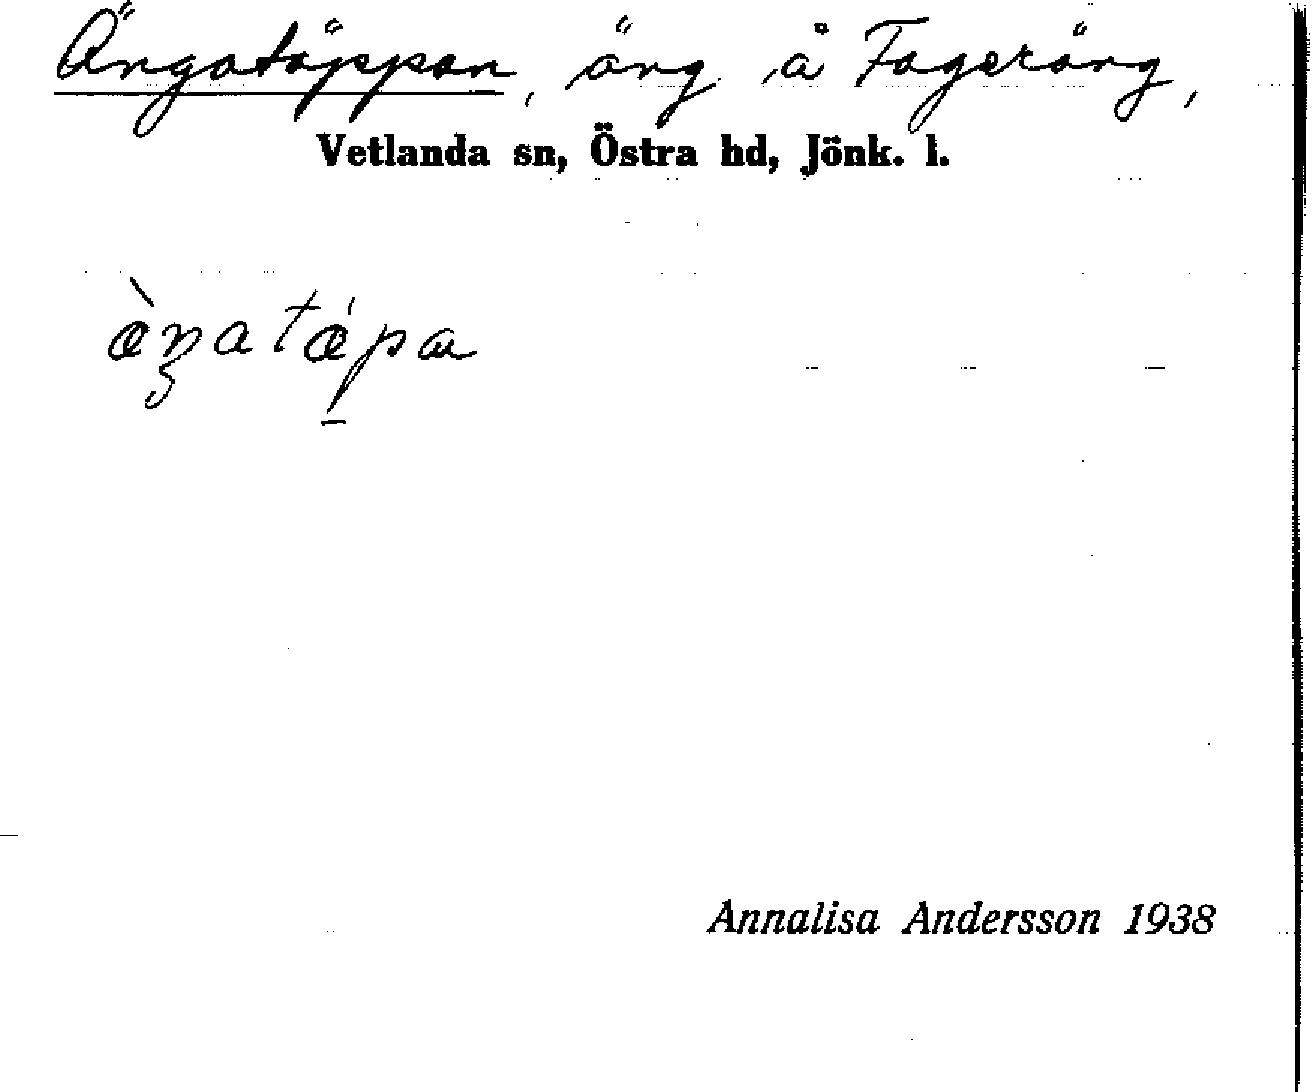 Ängatäppan, äng å Fageräng,
Vetlanda sn, Östra hd, Jönk. l.
æ̀ŋatǽp̲a
Annalisa Andersson 1938